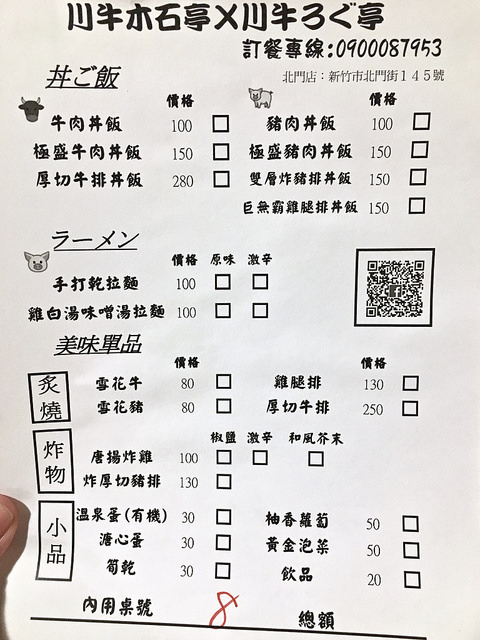 川牛木石亭X川牛ろぐ亭
訂餐專線:0900087953
北門店：新竹市北門街１４５號
丼ご飯
價格 價格
牛肉丼飯 100 豬肉丼飯 100
極盛牛肉丼飯 150 極盛豬肉丼飯 150
厚切牛排丼飯 280 雙層炸豬排丼飯 150
巨無霸雞腿排丼飯 150
ラーメン
價格 原味 激辛
手打乾拉麵 100
雞白湯味噌湯拉麵 100
美味單品
價格 價格
炙燒
雪花牛 80 雞腿排 130
雪花豬 80 厚切牛排 250
椒鹽 激辛 和風芥末
炸物
唐揚炸雞 100
炸厚切豬排 130
小品
溫泉蛋(有機) 30 柚香蘿蔔 50
溏心蛋 30 黃金泡菜 50
筍乾 30 飲品 20
內用桌號 8 總額